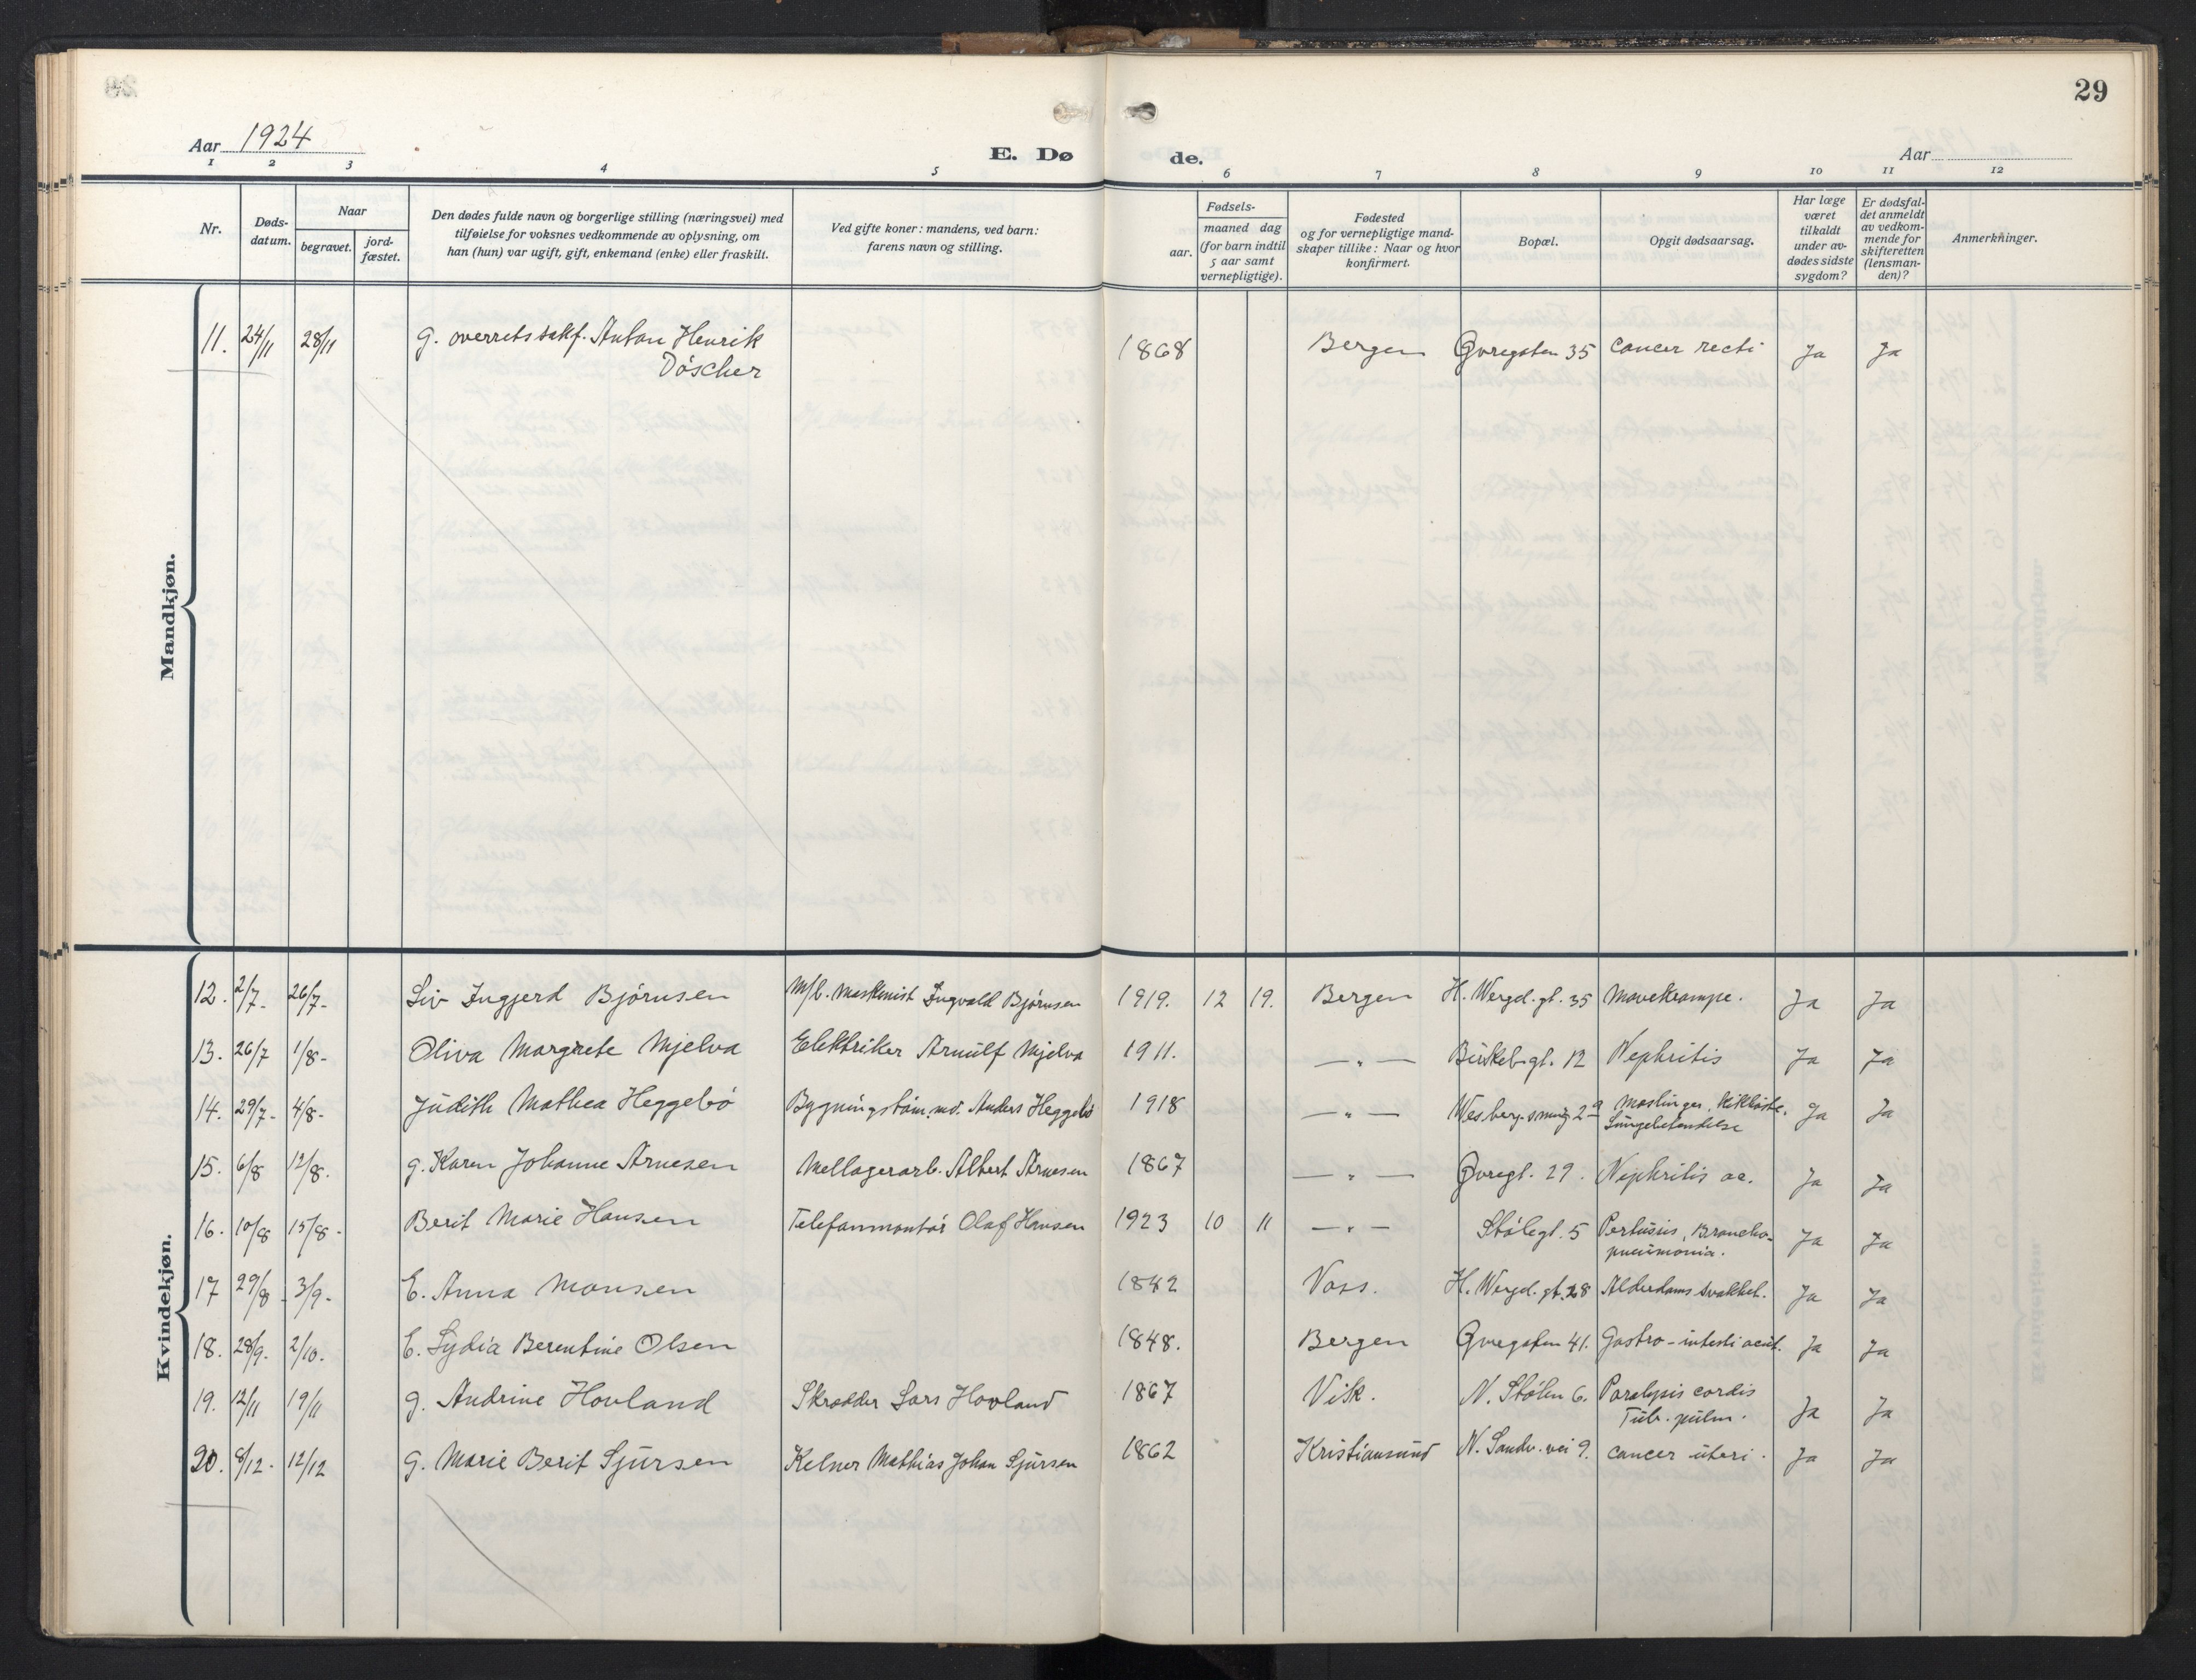 29
Aar 1924
E. Dø de.
Aar
1 2 3 4 5 6 7 8 9 10 11 12
Nr.
Døds-
datum.
Naar
begravet.
jord-
fæstet.
Den dødes fulde navn og borgerlige stilling (næringsvei) med
tilføielse for voksnes vedkommende av oplysning, om
han (hun) var ugift, gift, enkemand (enke) eller fraskilt.
Ved gifte koner: mandens, ved barn:
farens navn og stilling.
Fødsels-
aar.
maaned dag
(for barn indtil
5 aar samt
vernepligtige).
Fødested
og for vernepligtige mand-
skaper tillike: Naar og hvor
konfirmert.
Bopæl.
Opgit dødsaarsag.
Har læge
været
tilkaldt
under av-
dødes sidste
sygdom?
Er dødsfal-
det anmeldt
av vedkom-
mende for
skifteretten
(lensman-
den)?
Anmerkninger.
Mandkjøn.
11. 24/11 28/11 g. overretssakf. Anton Henrik
Döscher
1868 Bergen Øvregaten 35 cancer recti Ja Ja
Kvindekjøn.
12. 2/7- 26/7- Liv Ingjerd Bjørnsen M/b. maskinist Ingvald Bjørnsen 1919. 12 19. Bergen H. Wergel. gt. 35 Mavekrampe. Ja Ja
13. 26/7 1/8- Oliva Margrete Mjelva Elektriker Arnulf Mjelva 1911. — " — Birkeb.gt. 12 Nephritis Ja Ja
14. 29/7- 4/8- Judith Mathea Heggebø Bygningstøm.md. Anders Heggebø 1918 — " — Mæslinger, Kikhoste.
Lungebetændelse Ja Ja
15. 6/8 12/8. g. Karen Johanne Arnesen Mellagerarb. Albert Arnesen 1867 — " — Øvregt. 29. Nephritis ac. Ja Ja
16. 10/8 15/8- Berit Marie Hansen Telefonmontør Olaf Hansen 1923 10 11 — " — Stølegt. 5 Pertussis, Broncho-
pneumonia. Ja Ja
17 29/8- 3/9- E. Anna Monsen 1842 Voss. H. Wergel. gt. 28 Alderdomssvakhet. Ja Ja
18. 28/9. 2/10. E. Lydia Berentine Olsen 1848. Bergen Øvregaten 41. Gastro-intesti acut. Ja Ja
19. 12/11 19/11 g. Andrine Hovland Skrædder Lars Hovland 1867 Vik. N. Stølen 6. Paralysis cordis
Tub. pulm. Ja Ja
20. 8/12- 12/12 g. Marie Berit Sjursen Kelner Mathias Johan Sjursen 1862 Kristiansund N. Sandv.vei 9. cancer uteri. Ja Ja